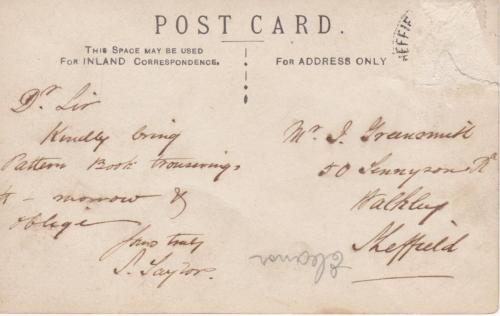 POST CARD.
THIS SPACE MAY BE USED
FOR INLAND CORRESPONDENCE.
FOR ADDRESS ONLY
Dr Sir
Kindly bring
Pattern Book trouserings
to-morrow &
oblige
Yours truly
S. Taylor
Mr J. Greensmith
50 Tennyson Rd
Walkley
Sheffield
Eleanor
HEFFIE